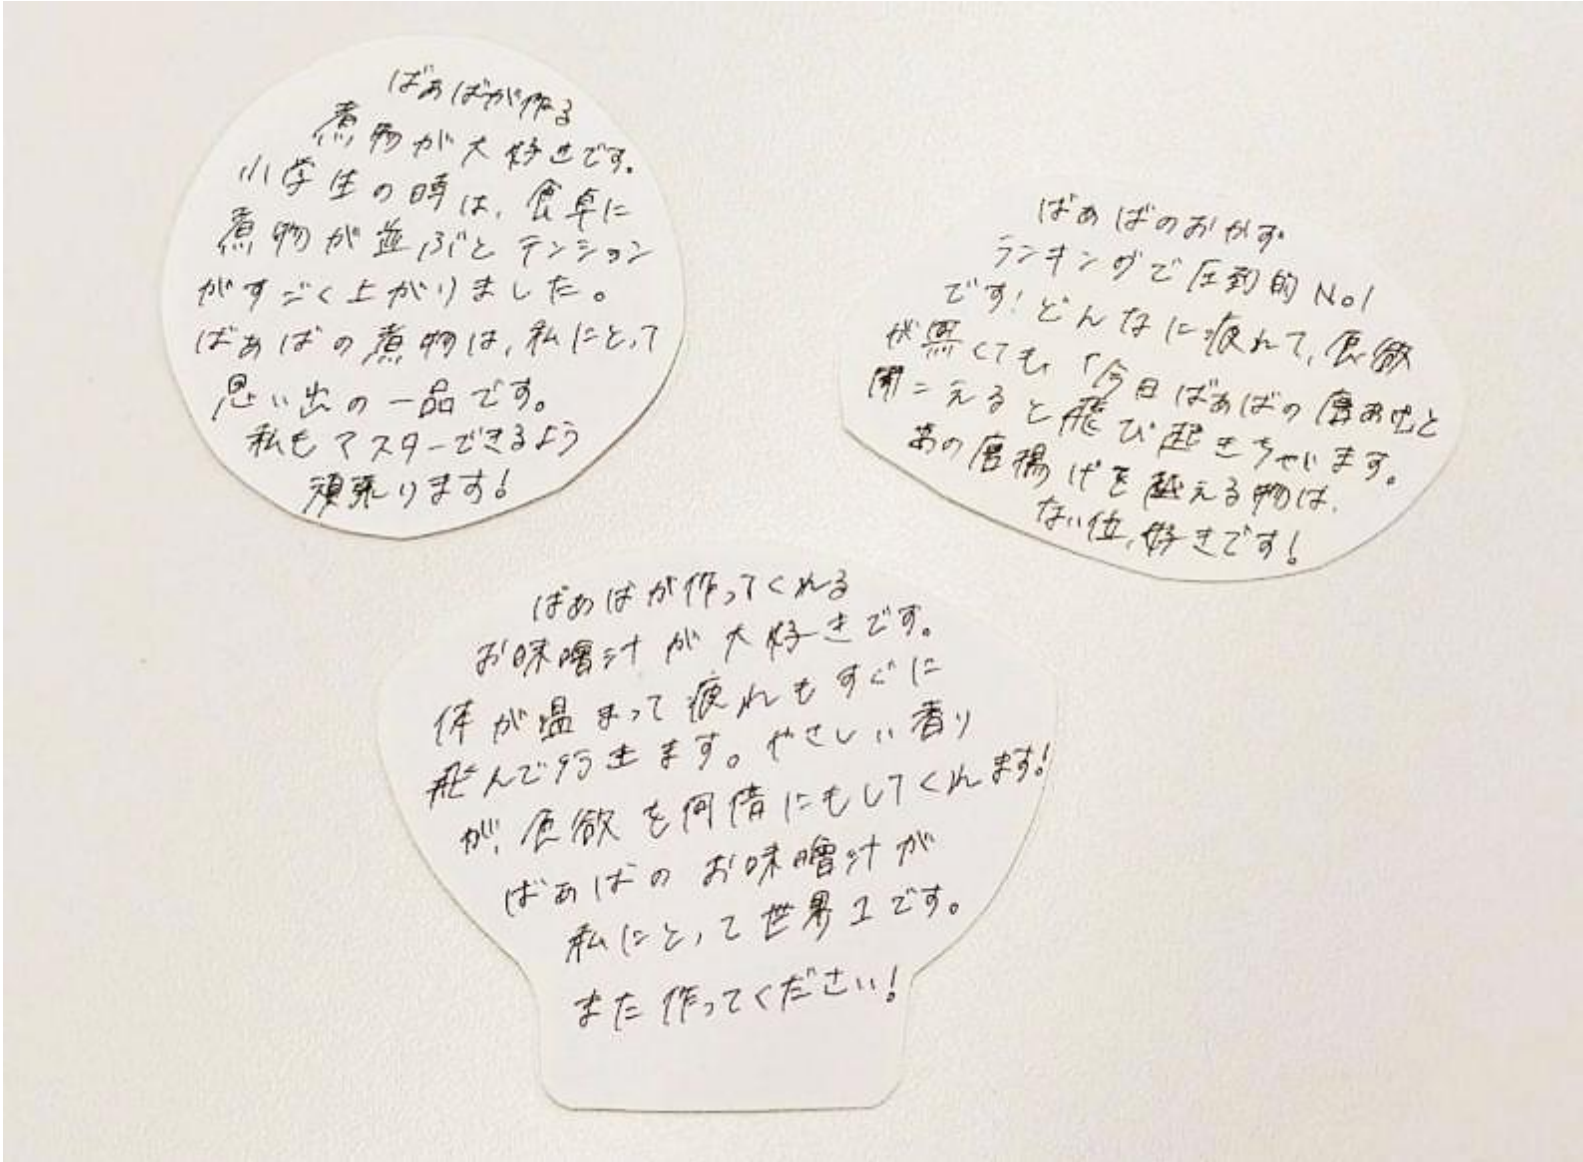 ばぁばが作る
煮物が大好きです。
小学生の時は、食卓に
煮物が並ぶとテンション
がすごく上がりました。
ばぁばの煮物は、私にとって
思い出の一品です。
私もマスターできるよう
頑張ります!
ばぁばのおかず
ランキングで圧到的No1
です!どんなに疲れて、食欲
が無くても、「今日ばぁばの唐あげ」と
聞こえると飛び起きちゃいます。
あの唐揚げを越える物は、
ない位、好きです!
ばぁばが作ってくれる
お味噌汁が大好きです。
体が温まって疲れもすぐに
飛んで行きます。やさしい香り
が、食欲を何倍にもしてくれます!
ばぁばのお味噌汁が
私にとって世界1です。
また作ってください!